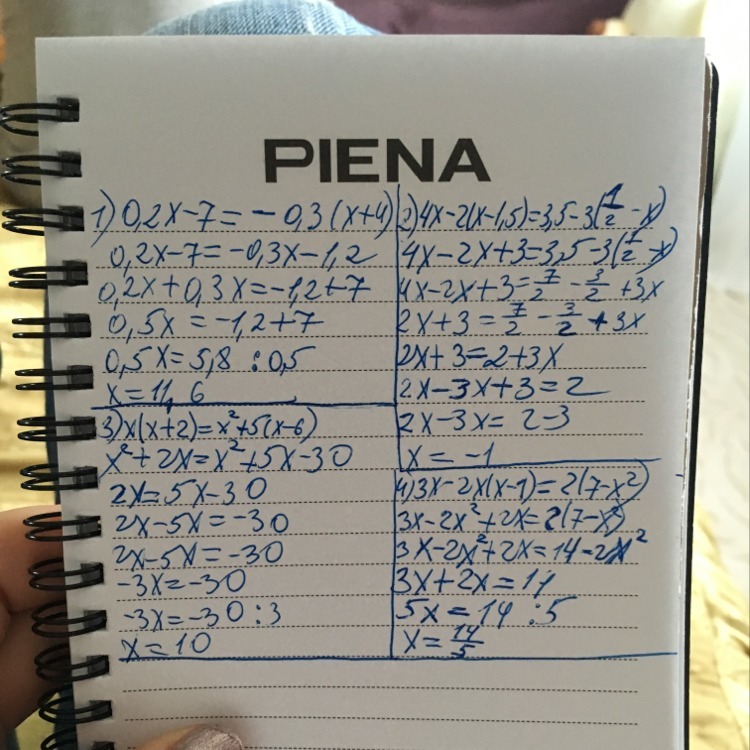 PIENA
1) 0,2x-7= -0,3(x+4)
0,2x-7=-0,3x-1,2
0,2x+0,3x=-1,2+7
0,5x=-1,2+7
0,5x=5,8 :0,5
x=11,6
2) 4x-2(x-1,5)=3,5-3(1/2-x)
4x-2x+3=3,5-3(1/2-x)
4x-2x+3=7/2-3/2+3x
2x+3=7/2-3/2+3x
2x+3=2+3x
2x-3x+3=2
2x-3x=2-3
x=-1
3) x(x+2)=x²+5(x-6)
x²+2x=x²+5x-30
2x=5x-30
2x-5x=-30
2x-5x=-30
-3x=-30
-3x=-30:3
x=10
4) 3x-2x(x-1)=2(7-x²)
3x-2x²+2x=2(7-x²)
3x-2x²+2x=14-2x²
3x+2x=14
5x=14 :5
x=14/5